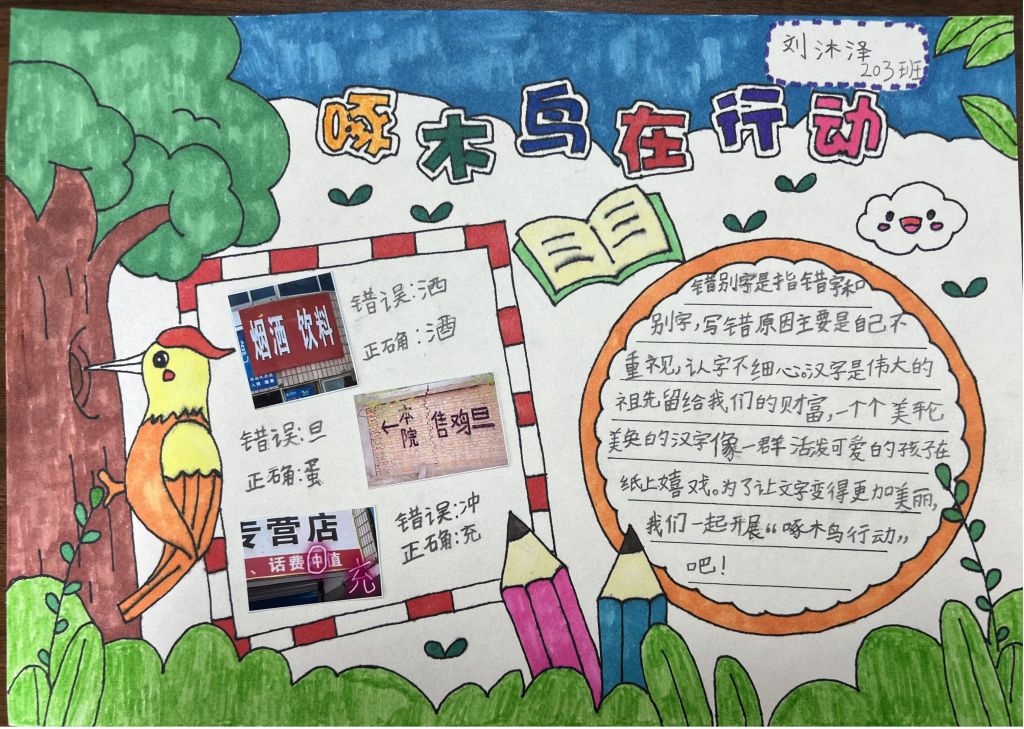 刘沐泽
203班
啄木鸟在行动
烟洒 饮料
错误:洒
正确:酒
错误:旦
正确:蛋
←本院 售鸡旦
专营店
、话费冲值
充
错误:冲
正确:充
错别字是指错字和
别字,写错原因主要是自己不
重视,认字不细心。汉字是伟大的
祖先留给我们的财富,一个个美轮
美奂的汉字像一群活泼可爱的孩子在
纸上嬉戏。为了让文字变得更加美丽,
我们一起开展“啄木鸟行动”
吧!